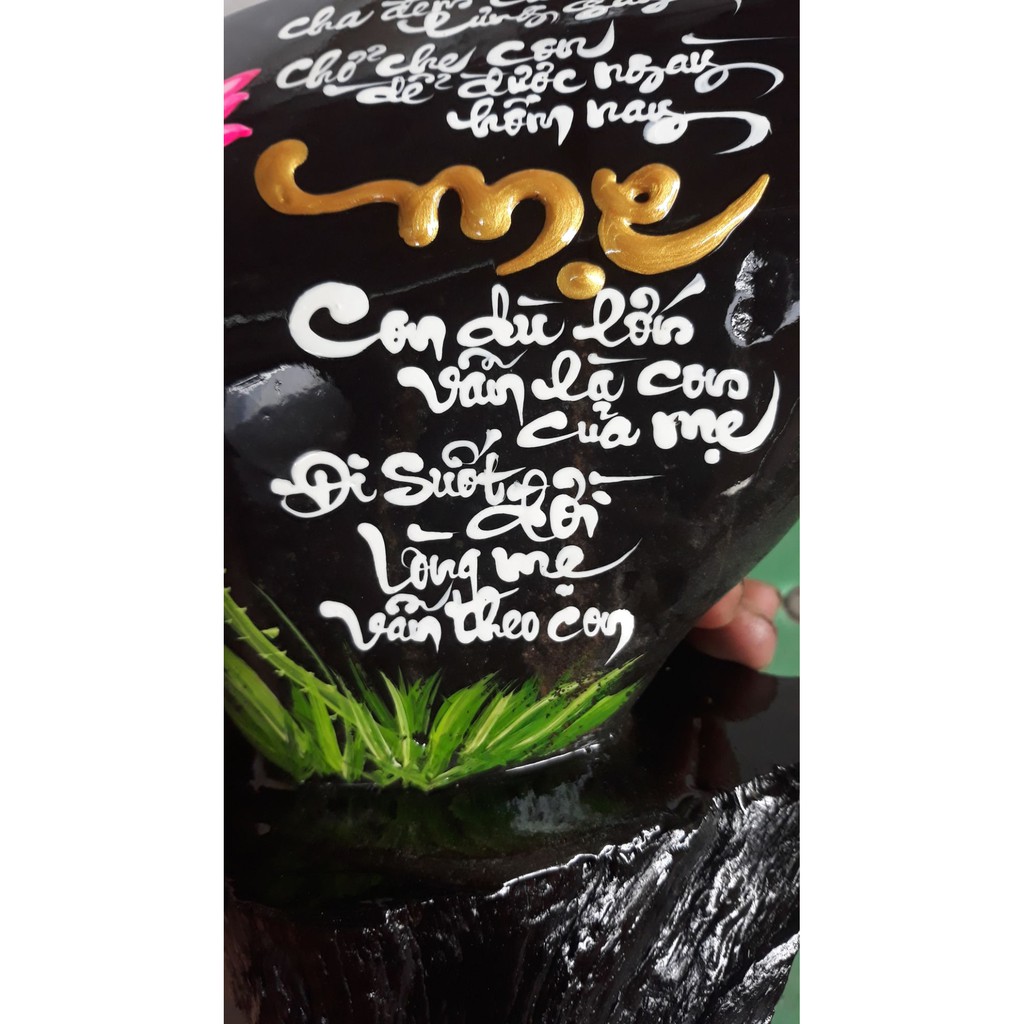 cha đêm
Chở che con
để được ngày
hôm nay
mẹ
Con dù lớn
vẫn là con
của mẹ
Đi suốt
đời
Lòng mẹ
vẫn theo con